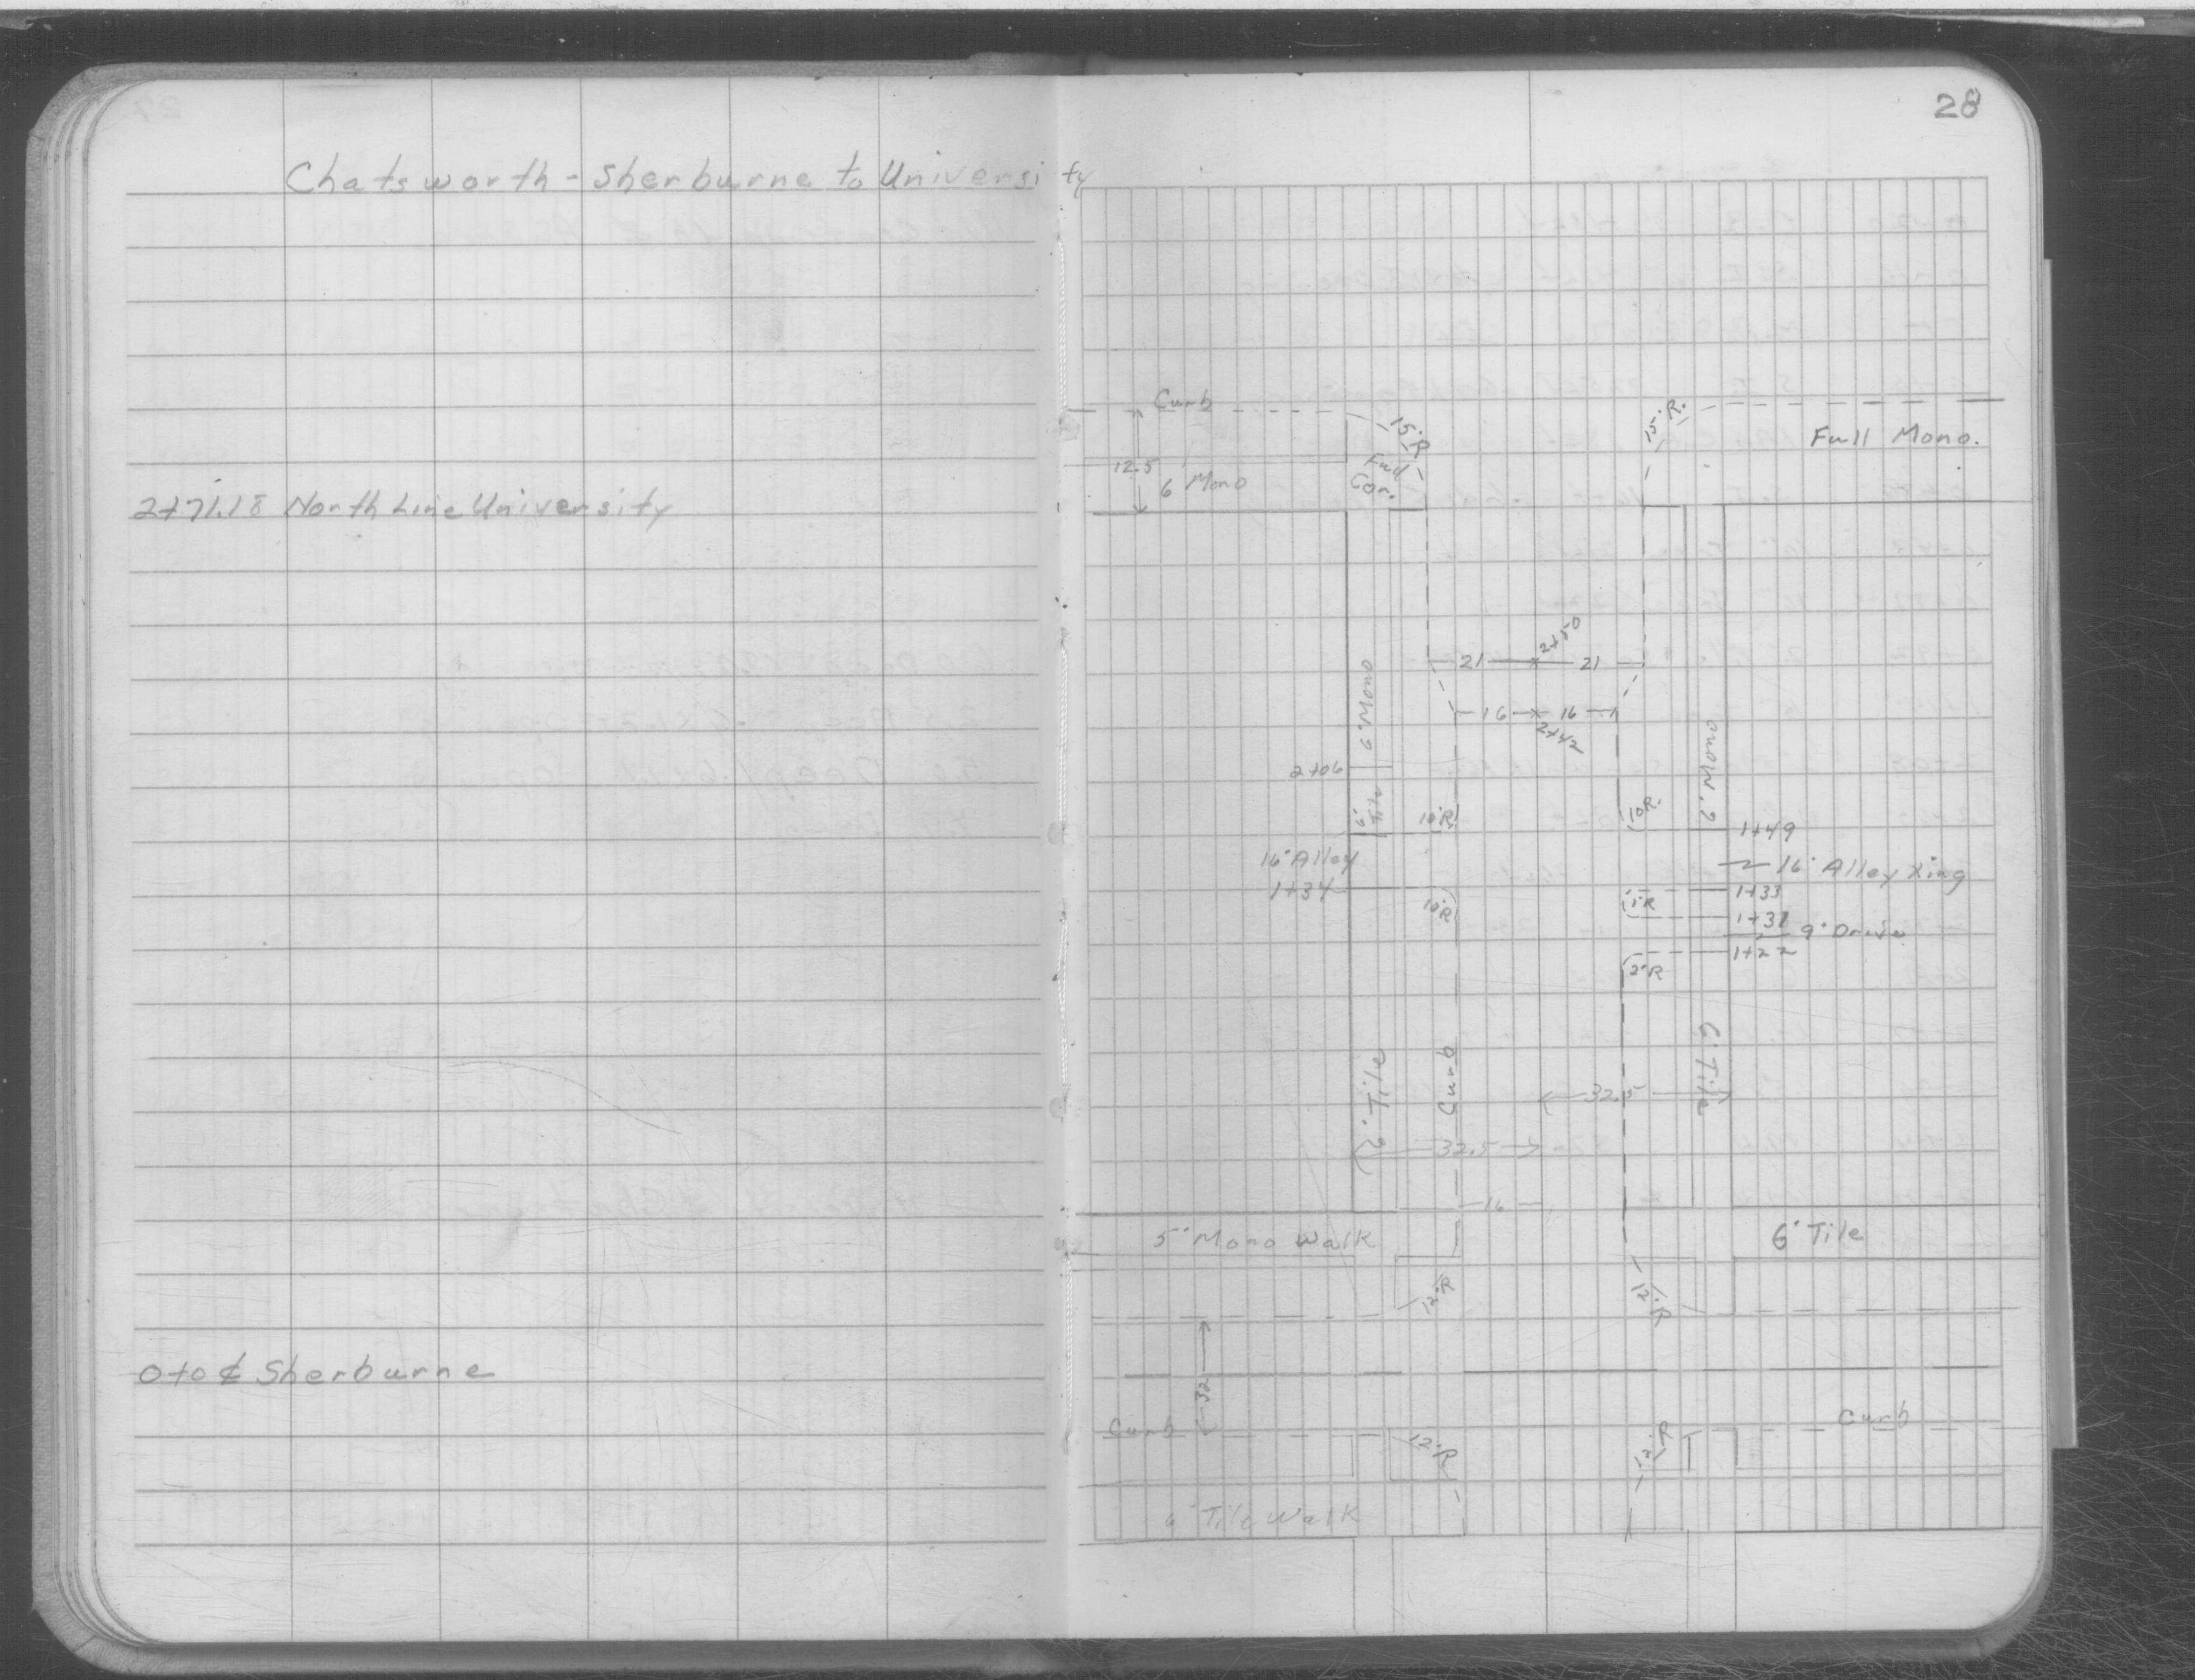 28
Chatsworth - Sherburne to University
Curb
15' R.
15' R.
Full Mono.
12.5
Full
Cor.
6 Mono
2+71.18 North Line University
2+50
21
21
6' Mono
16
16
2+42
6' Mono
2+06
6'
Tile
10' R.
10' R.
1+49
16' Alley
16' Alley Xing
1+34
1+33
10' R
1' R
1+31
9' Drive
1+22
2' R
6' Tile
6' Tile
Curb
32.5
32.5
16
5' Mono Walk
6' Tile
12' R
12' R
0+0 ⅊ Sherburne
32
Curb
Curb
12' R
12' R
6' Tile Walk